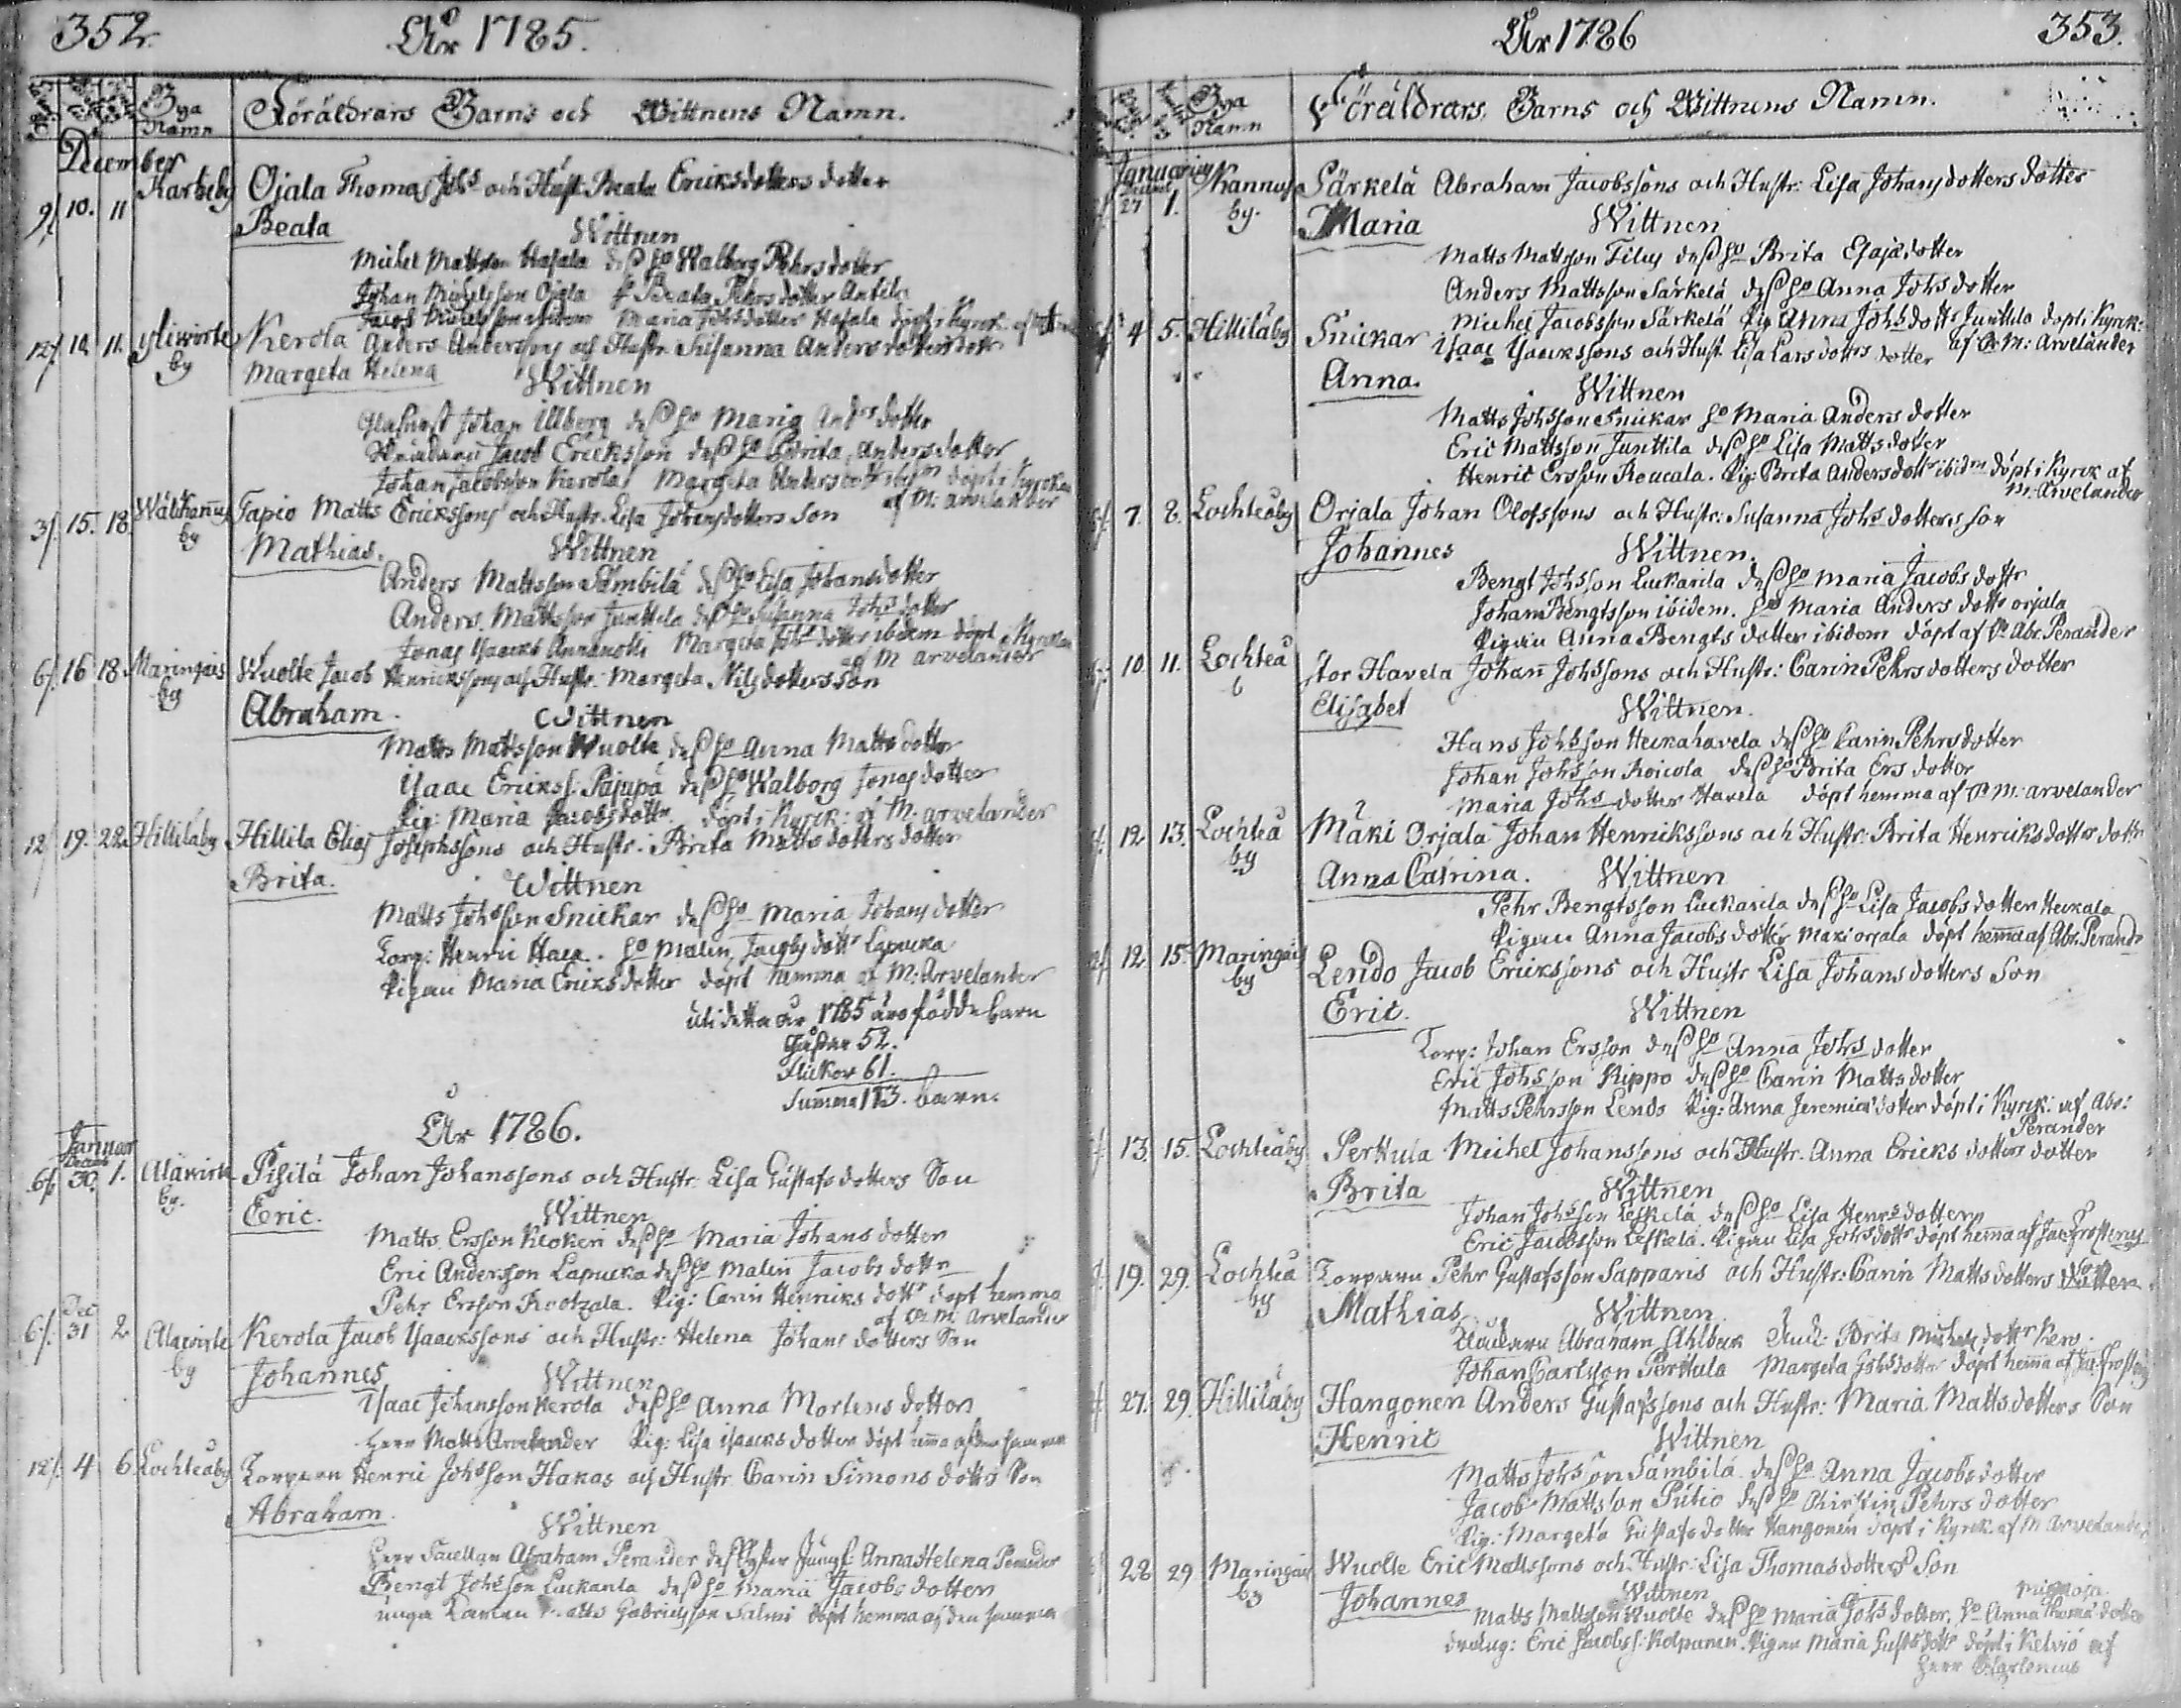 352.
År 1785.
Bya Namn
Föräldrars Barns och Wittnens Namn.
December
9/ 10. 11 Karhiby Ojala Thomas Johs och Hust. Beata Ericksdotters dotter
Beata
Wittnen
Michel Mattsson Hasala dess ho Walborg Pehrsdotter
Johan Michelsson Ojala Beata Pehrs dotter Anttila
Jacob Michelsson Maria Johsdotter Hasala döpt i Kyrck. af
12/ 10. 11. Yliwirte by Kerola Anders Anderssons och Hustr. Susanna Anders dotters dottr
Margeta Helena
Wittnen
Johan Ulberg dess ho Maria Anders dotter
Jacob Ericksson dess ho Brita Andersdotter
Johan Jacobsson Kerola Margeta Anders dottr döpt i Kyrckan
af M. Arvelander
3/ 15. 18. Wälikannus by Tapio Matts Erickssons och Hustr. Lisa Johansdotters son
Mathias.
Wittnen
Anders Mattsson Sämbilä dess ho Lisa Johansdotter
Anders Mattsson Junttila dess ho Susanna Johs dotter
Jonas Isaacks Annanolli Margeta Johs dotter ibidem döpt i Kyrckan
af M Arvelander
6/. 16 18. Maringais by Wuolle Jacob Henrickssons och Hustr. Margeta Nilsdotters son
Abraham.
Wittnen
Matts Mattsson Wuolle dess ho Anna Matts dotter
Isaac Erickss. Pajupä dess ho Walborg Jonas dotter
Pig: Maria Jacobsdottr. döpt i Kyrck: af M. Arvelander
12/ 19. 22. Hillilåby Hillila Elias Josephssons och Hustr. Brita Matts dotters dotter
Brita.
Wittnen
Matts Johsson Snickar dess ho Maria Johans dotter
Torp: Henric Haga. ho Malin Jacobs dottr Lapucka
Pigan Maria Ericks dotter döpt hemma af M: Arvelander
Uti detta år 1785 äro födde barn
Gossar 52.
Flickor 61.
Summa 113. barn.
År 1786.
Januar
Decemb
6/. 30. 1. Alawirte by. Pisilä Johan Johanssons och Hustr. Lisa Gustafs dotters Son
Eric.
Wittnen
Matts Ersson Klokeri dess ho Maria Johans dotter
Eric Andersson Lapucka dess ho Malin Jacobs dottr
Pehr Ersson Rootzala. Pig: Carin Henricks dottr döpt hemma
af M. Arvelander
Dec
6/. 31 2 Alawirte by Kerola Jacob Isaackssons och Hustr: Helena Johans dotters Son
Johannes
Wittnen
Isaac Johansson Kerola dess ho Anna Mortens dotter
Herr Matts Arvelander Pig: Lisa Isaacks dotter döpt hema af den samma
12/. 4 6 Lochteåby Torparen Henric Johsson Hakas och Hustr Carin Simons dottrs Son
Abraham.
Wittnen
Herr Sacellan Abraham Perander dess Syster Jungf: Anna Helena Perander
Bengt Johsson Luckarila dess ho Maria Jacobs dotter
unga Matts Gabrielsson Salmi döpt hemma af den samma
353.
År 1786
Bya Namn
Föräldrars. Barns och Wittnens Namn.
Januarius
27 1. Kannus by. Särkelä Abraham Jacobssons och Hustr: Lisa Johans dotters dotter
Maria
Wittnen
Matts Mattsson Filus dess ho Brita Esaiædotter
Anders Mattsson Särkelä dess ho Anna Johs dotter
Michel Jacobsson Särkelä Pig Anna Johs dottr Junttila döpt i Kyrck:
af M: Arvelander
4 5. Hillilåby Snickar Isaac Isaackssons och Hust. Lisa Lars dotters dotter
Anna.
Wittnen
Matts Johsson Snickar ho Maria Anders dotter
Eric Mattsson Junttila dess ho Lisa Matts dotter
Henric Ersson Roucala. Pig: Brita Andersdottr ibidem döpt i Kyrck af
M. Arvelander
7. 8. Lochteåby Orjala Johan Olofssons och Hustr: Susanna Johs dotters son
Johannes
Wittnen.
Bengt Johsson Luckarila dess ho Maria Jacobs dottr
Johan Bengtsson ibidem. ho Maria Anders dottr Orjala
Pigan Anna Bengts dotter ibidem döpt af Abr. Perander
10. 11. Lochteå b Stor Havela Johan Johssons och Hustr: Carin Pehrs dotters dotter
Elisabet
Wittnen.
Hans Johsson Heickahavela dess ho Carin Pehrsdotter
Johan Johsson Roicola dess ho Brita Ers dotter
Maria Johs dotter Havela döpt hemma af M: Arvelander
12 13. Lochteå by Mäki Orjala Johan Henrickssons och Hustr: Brita Henricksdotter dottr
Anna Catrina.
Wittnen
Pehr Bengtsson Luckarila dess ho Lisa Jacobs dotter Heickala
Pigan Anna Jacobs dotter Maxi orjala döpt hema af Abr. Perander
12 15. Maringais by Lendo Jacob Erickssons och Hustr Lisa Johans dotters Son
Eric.
Wittnen
Torp: Johan Ersson dess ho Anna Johs dotter
Eric Johsson Kippo dess ho Carin Matts dotter
Matts Pehrsson Lendo Pig: Anna Jeremiæ dotter döpt i Kyrck: af Abr:
Perander
13. 15. Lochteåby Perkula Michel Johanssons och Hustr. Anna Ericks dotters dotter
Brita
Wittnen
Johan Johsson Leskelä dess ho Lisa Henrs dotter
Eric Jacobsson Leskelä. Pigan Lisa Johs dottr döpt hema af Jac: Frosterus
19. 29. Lochteå by Torparen Pehr Gustafsson Sapparis och Hustr: Carin Matts dotters Son
Mathias
Wittnen
Abraham Ahlbeck Brita Michels dottr Kero.
Johan Carlsson Perkula Margeta Johs dotter döpt hema af Jac. Frosterus
27. 29. Hillilåby Hangonen Anders Gustafssons och Hustr: Maria Matts dotters Son
Henric
Wittnen
Matts Johsson Sämbilä dess ho Anna Jacobs dotter
Jacob Mattsson Putio dess ho Christin Pehrs dotter
Pig. Margeta Gustafs dotter Hangonen döpt i Kyrck. af M Arvelander
28 29 Maringais by Wuolle Eric Mattssons och Hustr: Lisa Thomas dotters Son
Johannes
Wittnen
Matts Mattsson Wuolle dess ho Maria Johs dotter, ho Anna Thoms dotter
Eric Jacobss: Kolpanen. Pigan Maria Gustfs dottr döpt i Kelviö af
Herr